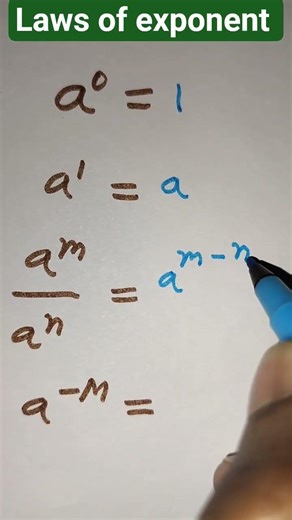 Laws of exponent
a⁰ = 1
a¹ = a
aᵐ/aⁿ = aᵐ⁻ⁿ
a⁻ᴹ =